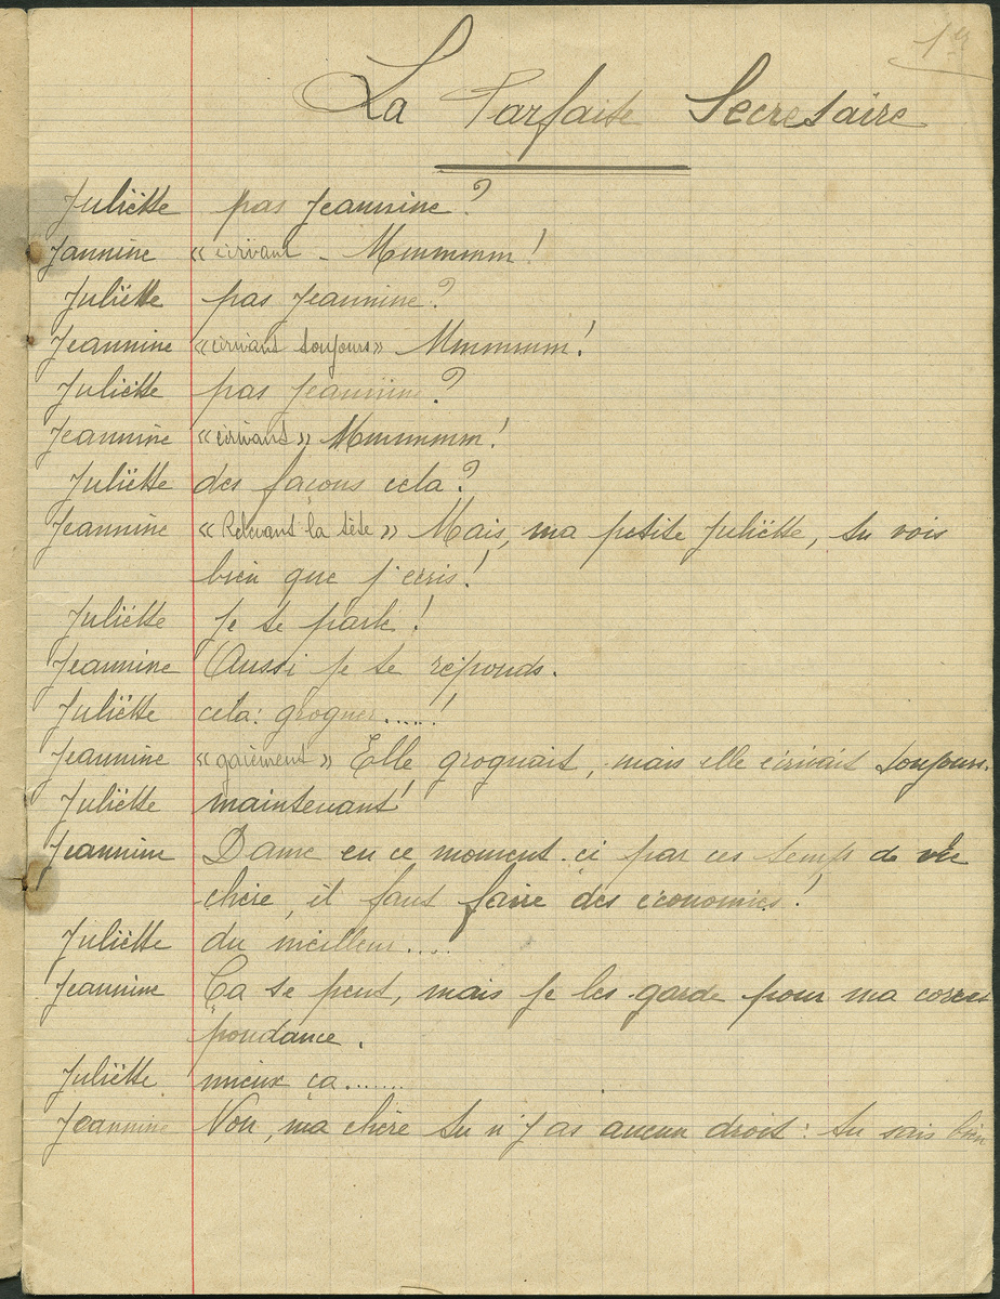 1er
La Parfaite Secretaire
Juliëtte pas Jeannine ?
Jannine « ecrivant - Mmmmmm !
Juliëtte pas Jeannine ?
Jeannine « ecrivant toujours » Mmmmmm !
Juliëtte pas Jeannine ?
Jeannine « ecrivant » Mmmmmmm !
Juliëtte des façons cela ?
Jeannine « Relevant la tête » Mais, ma petite Juliëtte, tu vois
bien que j'ecris !
Juliëtte Je te parle !
Jeannine Aussi je te réponds.
Juliëtte cela : grogner.....!
Jeannine « gaiement » Elle grognait, mais elle ecrivait toujours.
Juliëtte maintenant !
Jeannine Dame en ce moment-ci par ces temps de vie
chère, il faut faire des économies !
Juliëtte du meilleur....
Jeannine Ça se peut, mais je les garde pour ma corres
pondance.
Juliëtte mieux ça.......
Jeannine Non, ma chère tu n'y as aucun droit : tu sais bien